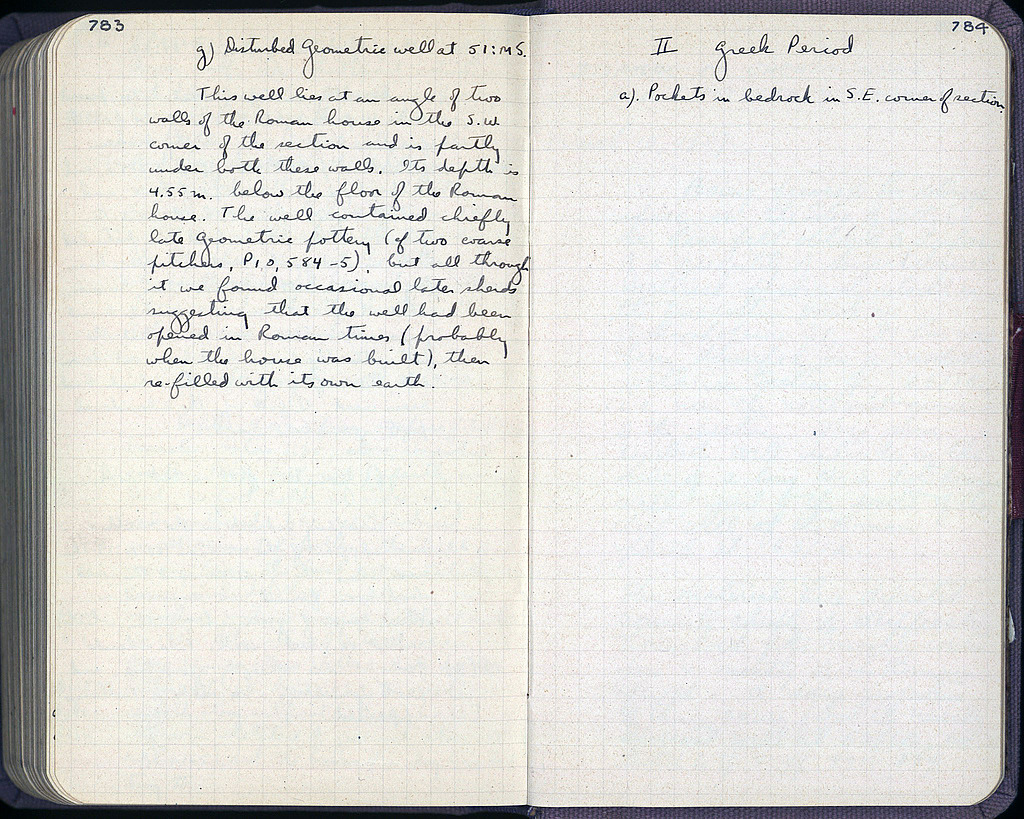 783
g) Disturbed Geometric well at 51:ΜS.
This well lies at an angle of two
walls of the Roman house in the S.W.
corner of the section and is partly
under both these walls. Its depth is
4.55 m. below the floor of the Roman
house. The well contained chiefly
late Geometric pottery (cf two coarse
pitchers, P10,584-5), but all through
it we found occasional later sherds
suggesting that the well had been
opened in Roman times (probably
when the house was built), then
re-filled with its own earth.
784
II Greek Period
a). Pockets in bedrock in S.E. corner of section.